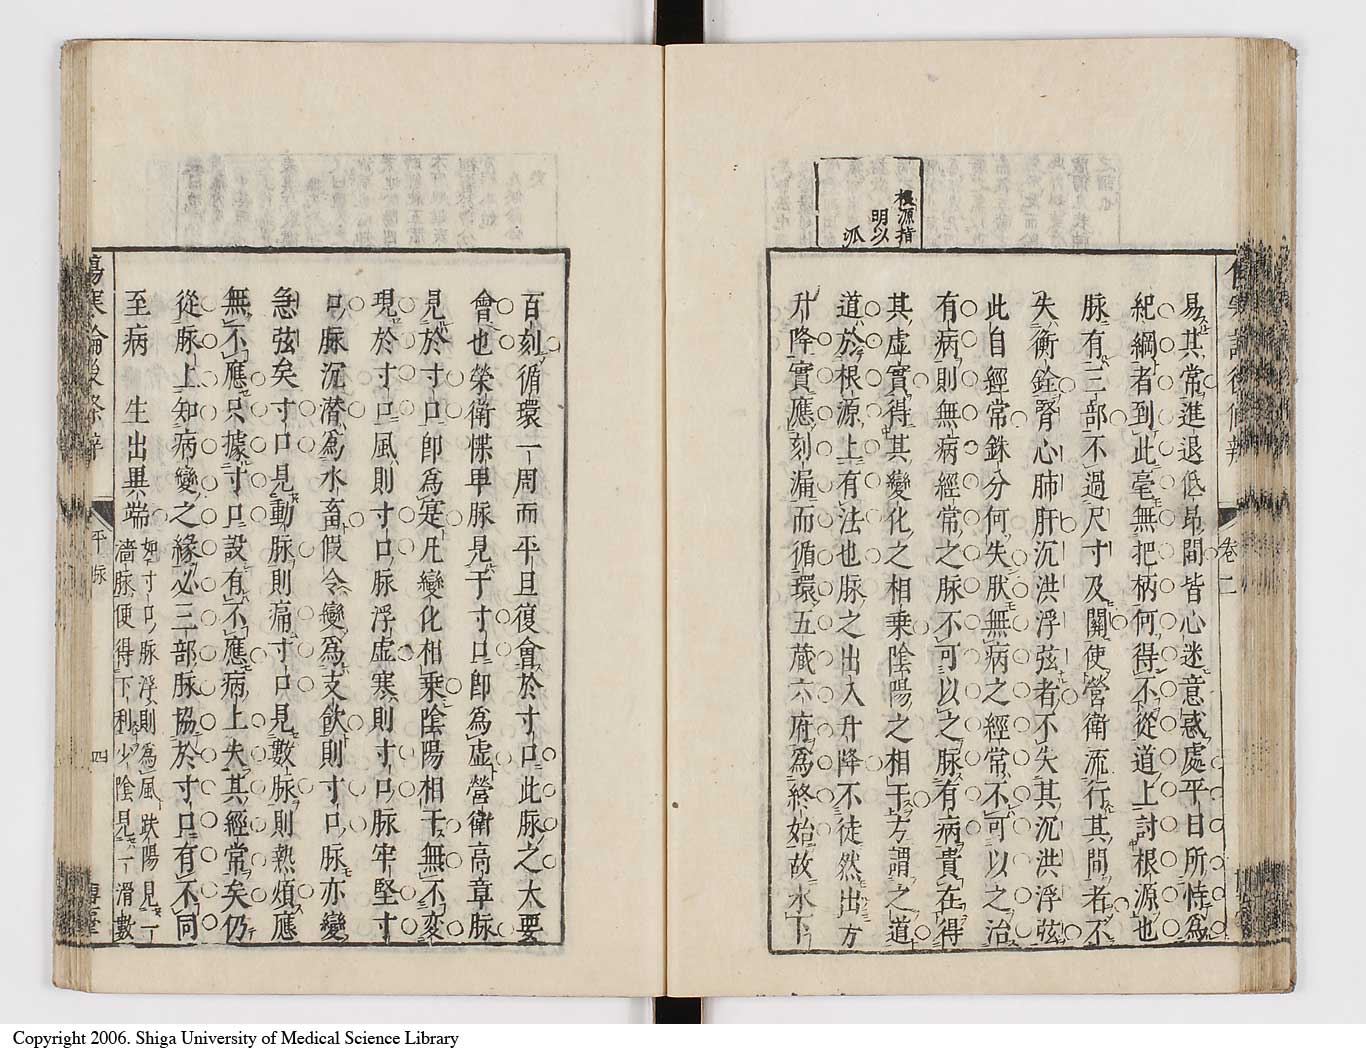 根源指
明以
泒
易其常進退低昂間皆心迷意惑處平日所恃爲
紀綱者到此毫無把柄何得不從道上討根源也
脉有三部不過尺寸及關使營衛流行其間者不
失衡銓腎心肺肝沉洪浮弦者不失其沉洪浮弦
此自經常銖分何失肰無病之經常不可以之治
有病則無病經常之脉不可以之脉有病貴在得
其虛實得其變化之相乗陰陽之相干方謂之道
道於根源上有法也脉之出入升降不徒然出方
升降實應刻漏而循環五蔵六府爲終始故水下
卷二
百刻循環一周而平旦復會於寸口此脉之大要
會也榮衛慄卑脉見于寸口卽爲虛營衛高章脉
見於寸口卽爲寔凡變化相乗陰陽相干無不変
現於寸口風則寸口脉浮虛寒則寸口脉牢堅寸
口脉沉潜爲水畜假令變爲支飲則寸口脉亦變
急弦矣寸口見動脉則痛寸口見數脉則熱煩應
無不應只據寸口設有不應病上失其經常矣仍
從脉上知病變之緣必三部脉協於寸口有不同
至病 生出異端 如寸口脉浮則爲風趺陽見一
濇脉便得下利少陰見一滑數
傷寒論後條辨 平脉 四